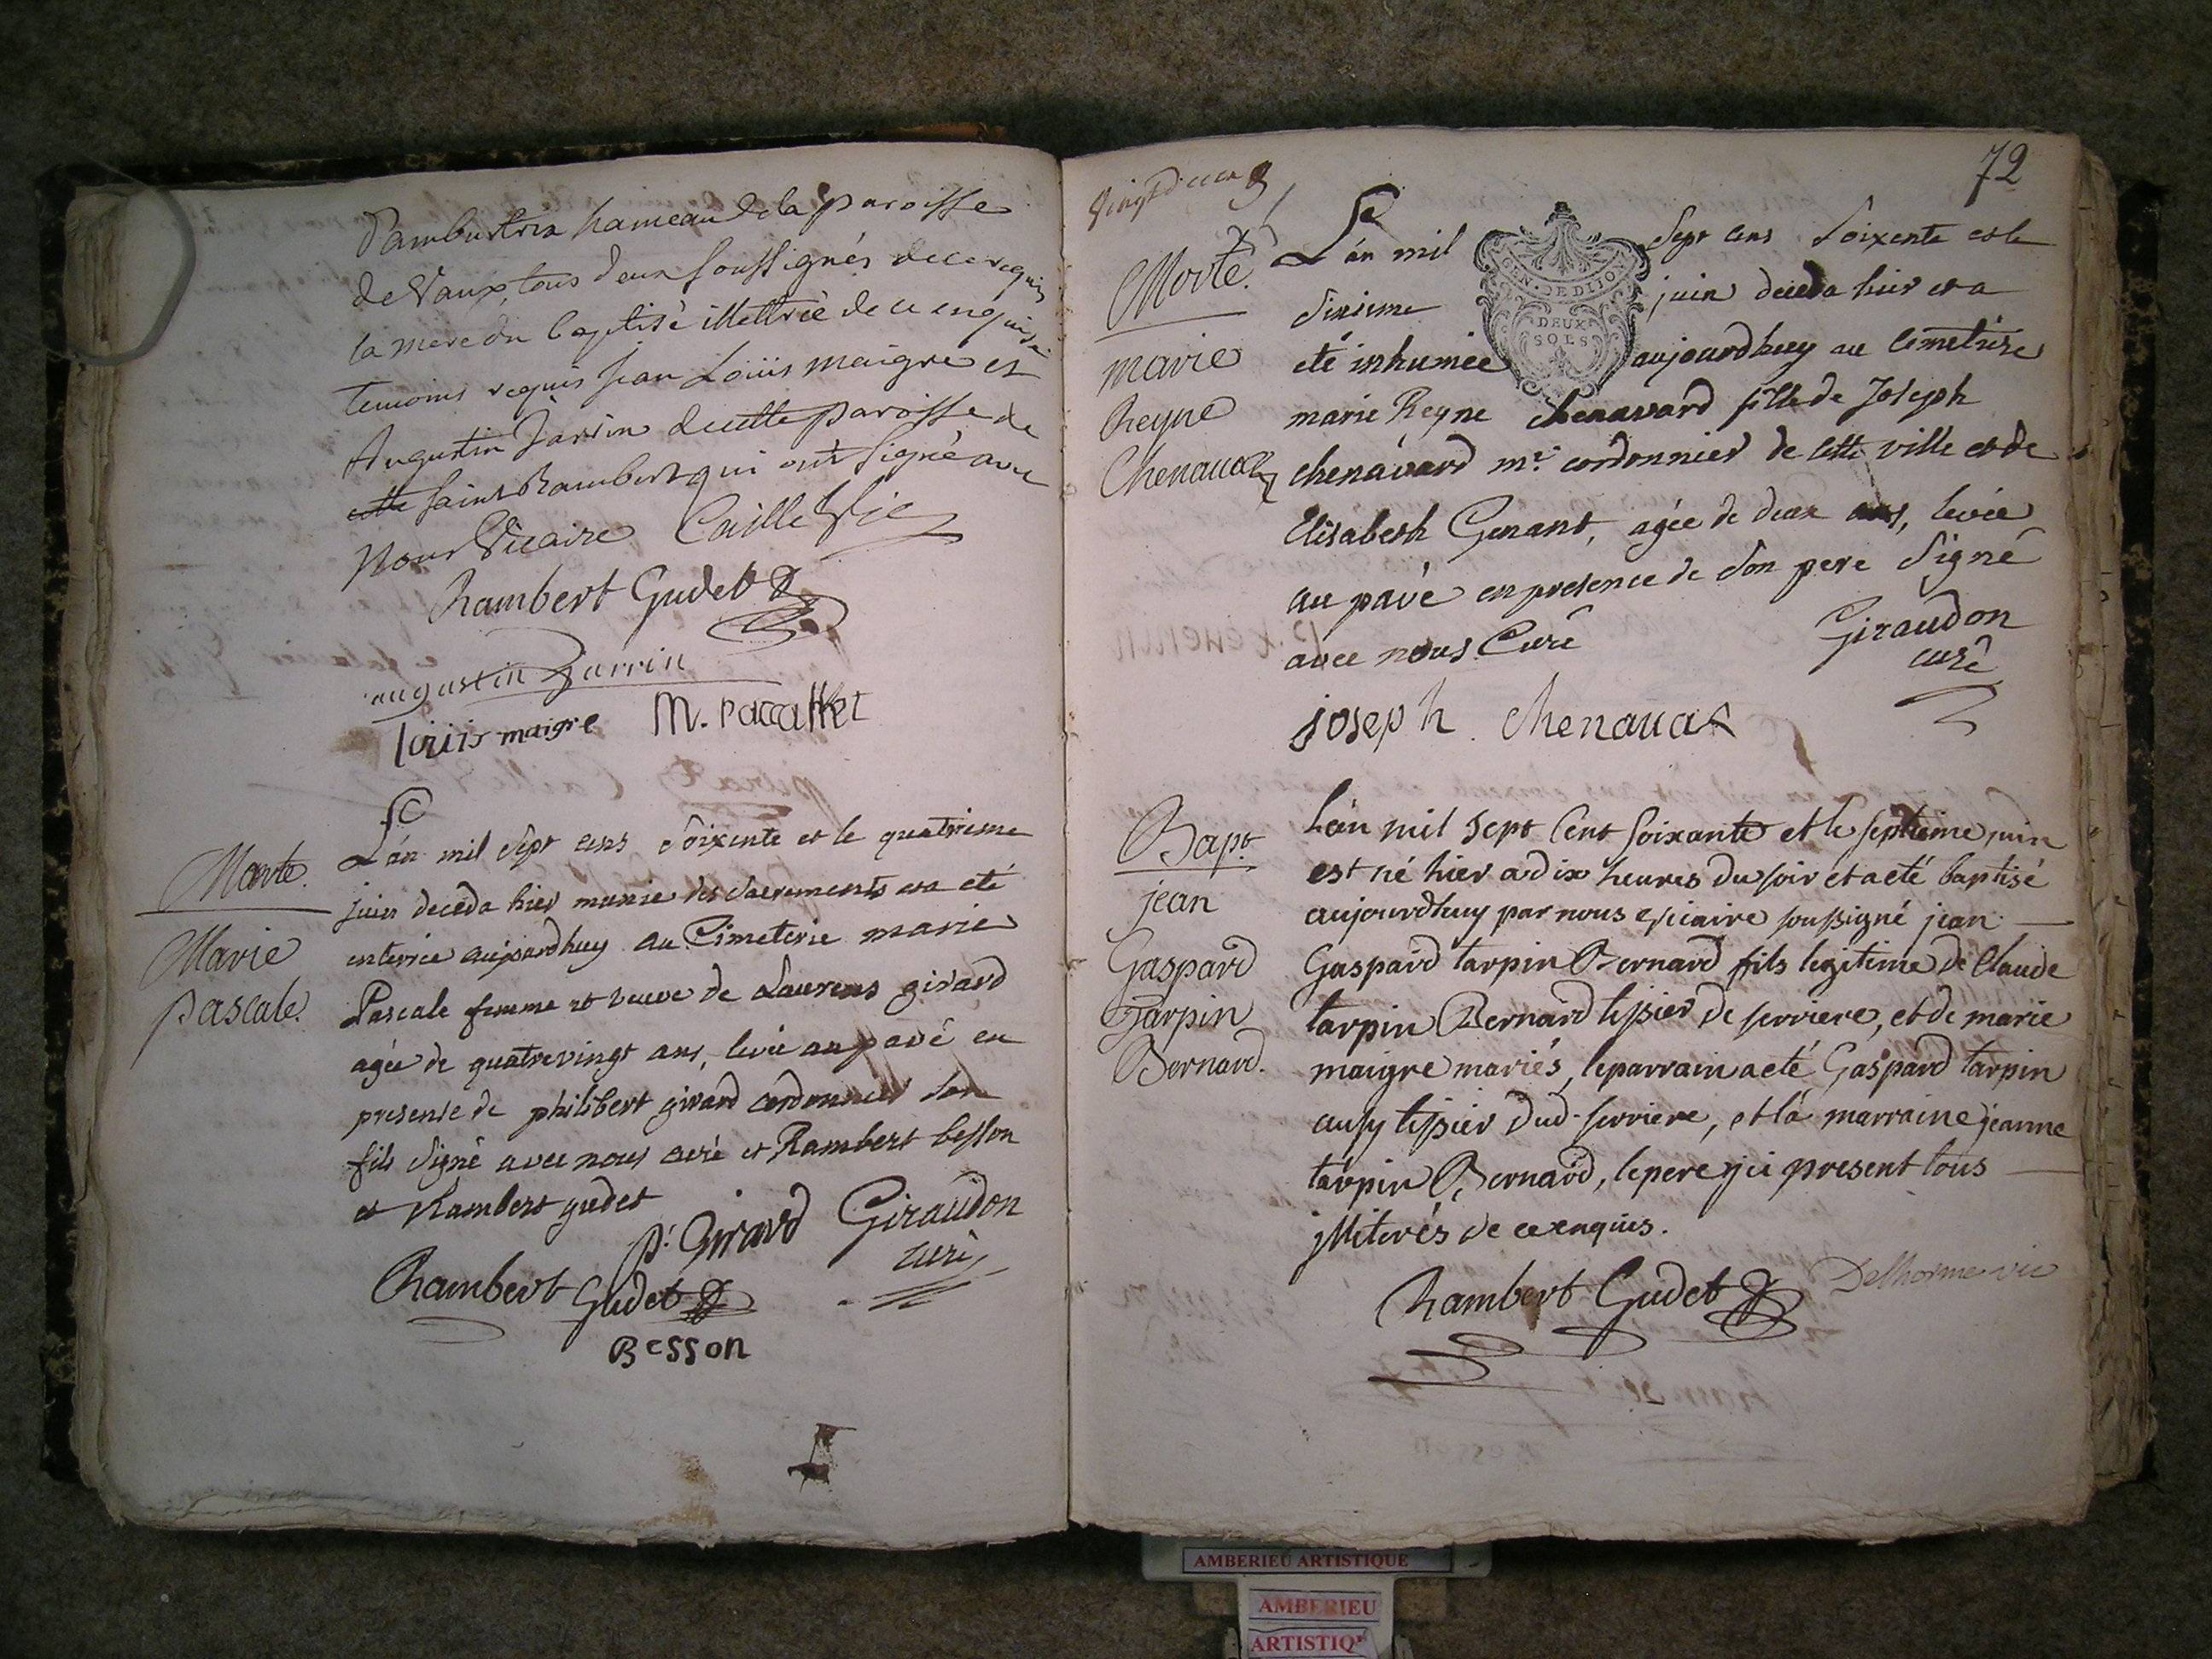 d'ambutrix hameau de la paroisse
de Vaux, tous deux soussignés de ce requis
la mere du baptisé illettrée de ce enquise
temoins requis jean Loüis maigre et
Augustin Jarrin de cette paroisse de
cette saint Rambert qui ont signé avec
Nous Vicaire Caille Vic
Rambert Gudet
augustin Jarrin
loüis maigre M. Paccallet
Morte.
Marie
pascale.
Sc
L'an mil sept cens soixente et le quatrieme
juin deceda hier munie des sacrements et a eté
enterrée aujourdhuy au Cimeterie marie
Pascale femme et veuve de Laurens girard
agée de quatrevingt ans, levée au pavé en
presence de philibert girard cordonnier son
fils signé avec nous curé et Rambert besson
et Rambert gudet
p. Girard Giraudon
curé
Rambert Gudet
Besson
72
Morte.
marie
Reyne
Chenavard
Sc
L'an mil sept cens soixente et le
sixieme juin deceda hier et a
eté inhumée aujourdhuy au cimetiere
GEN. DE DIJON
DEUX
SOLS
marie Reyne chenavard fille de Joseph
chenavard mr. cordonnier de cette ville et de
Elisabeth Genant, agée de deux ans, levée
au pavé en presence de son pere signé
avec nous Curé Giraudon
curé
joseph chenauar
Bapt
jean
Gaspard
Tarpin
Bernard.
L'an mil sept cent soixante et le septieme juin
est né hier a dix heures du soir et a eté baptisé
aujourdhuy par nous vicaire soussigné jean
Gaspard tarpin Bernard fils legitime de Claude
tarpin Bernard tissier de serriere, et de marie
maigre mariés, le parrain a eté Gaspard tarpin
aussy tissier dud. serriere, et la marraine jeanne
tarpin Bernard, le pere yci present tous
illiterés de ce enquis.
Rambert Gudet Delhorme vic
AMBERIEU ARTISTIQUE
AMBERIEU
ARTISTIQ